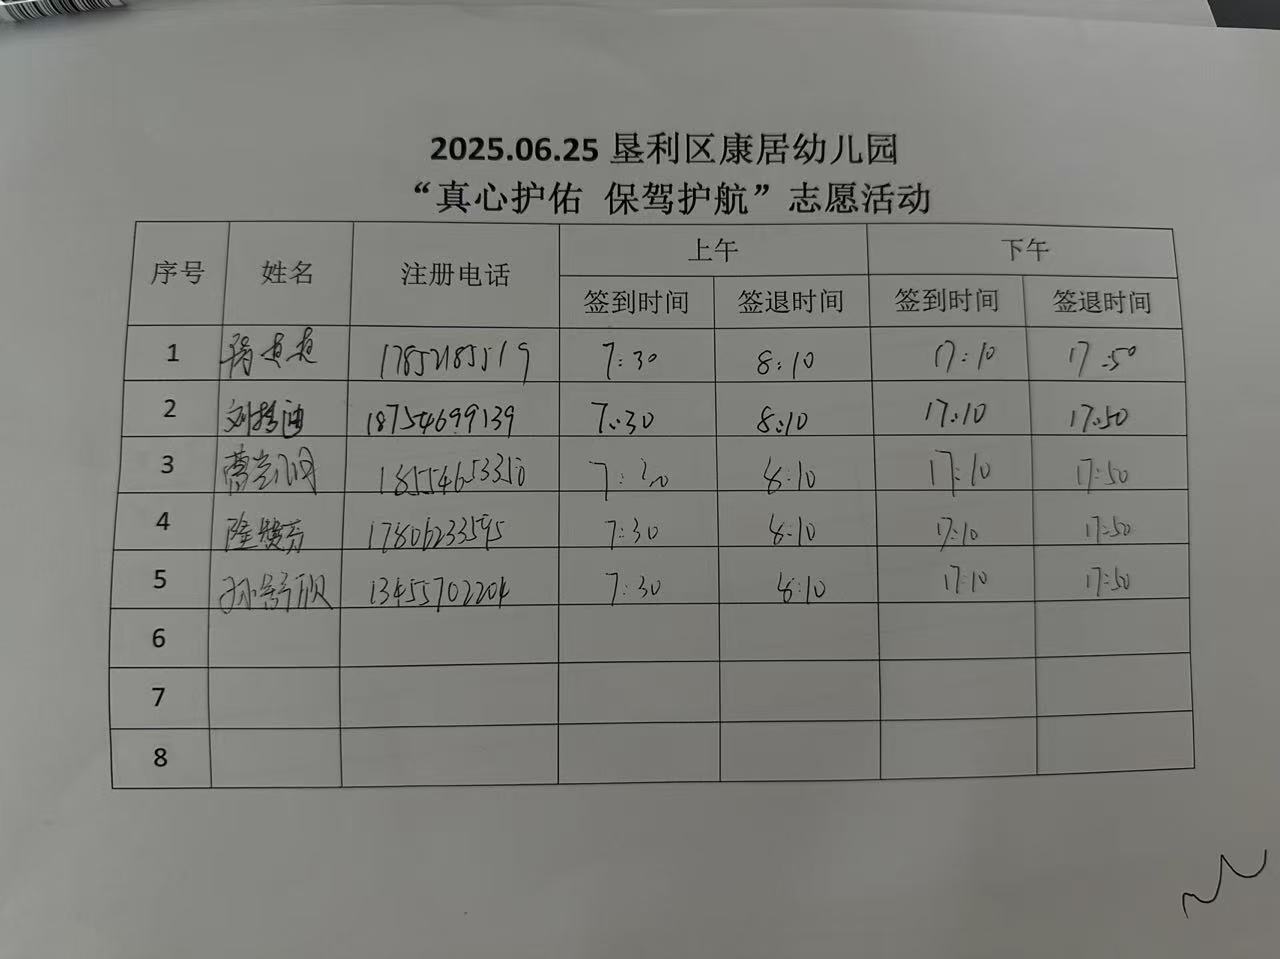 2025.06.25 垦利区康居幼儿园
“真心护佑 保驾护航”志愿活动
序号 姓名 注册电话 上午 下午
签到时间 签退时间 签到时间 签退时间
1 17852185519 7:30 8:10 17:10 17:50
2 刘 迪 18754699139 7:30 8:10 17:10 17:50
3 18554653350 7:30 8:10 17:10 17:50
4 隆 芬 17806233595 7:30 8:10 17:10 17:50
5 孙舒欣 13455702204 7:30 8:10 17:10 17:50
6
7
8